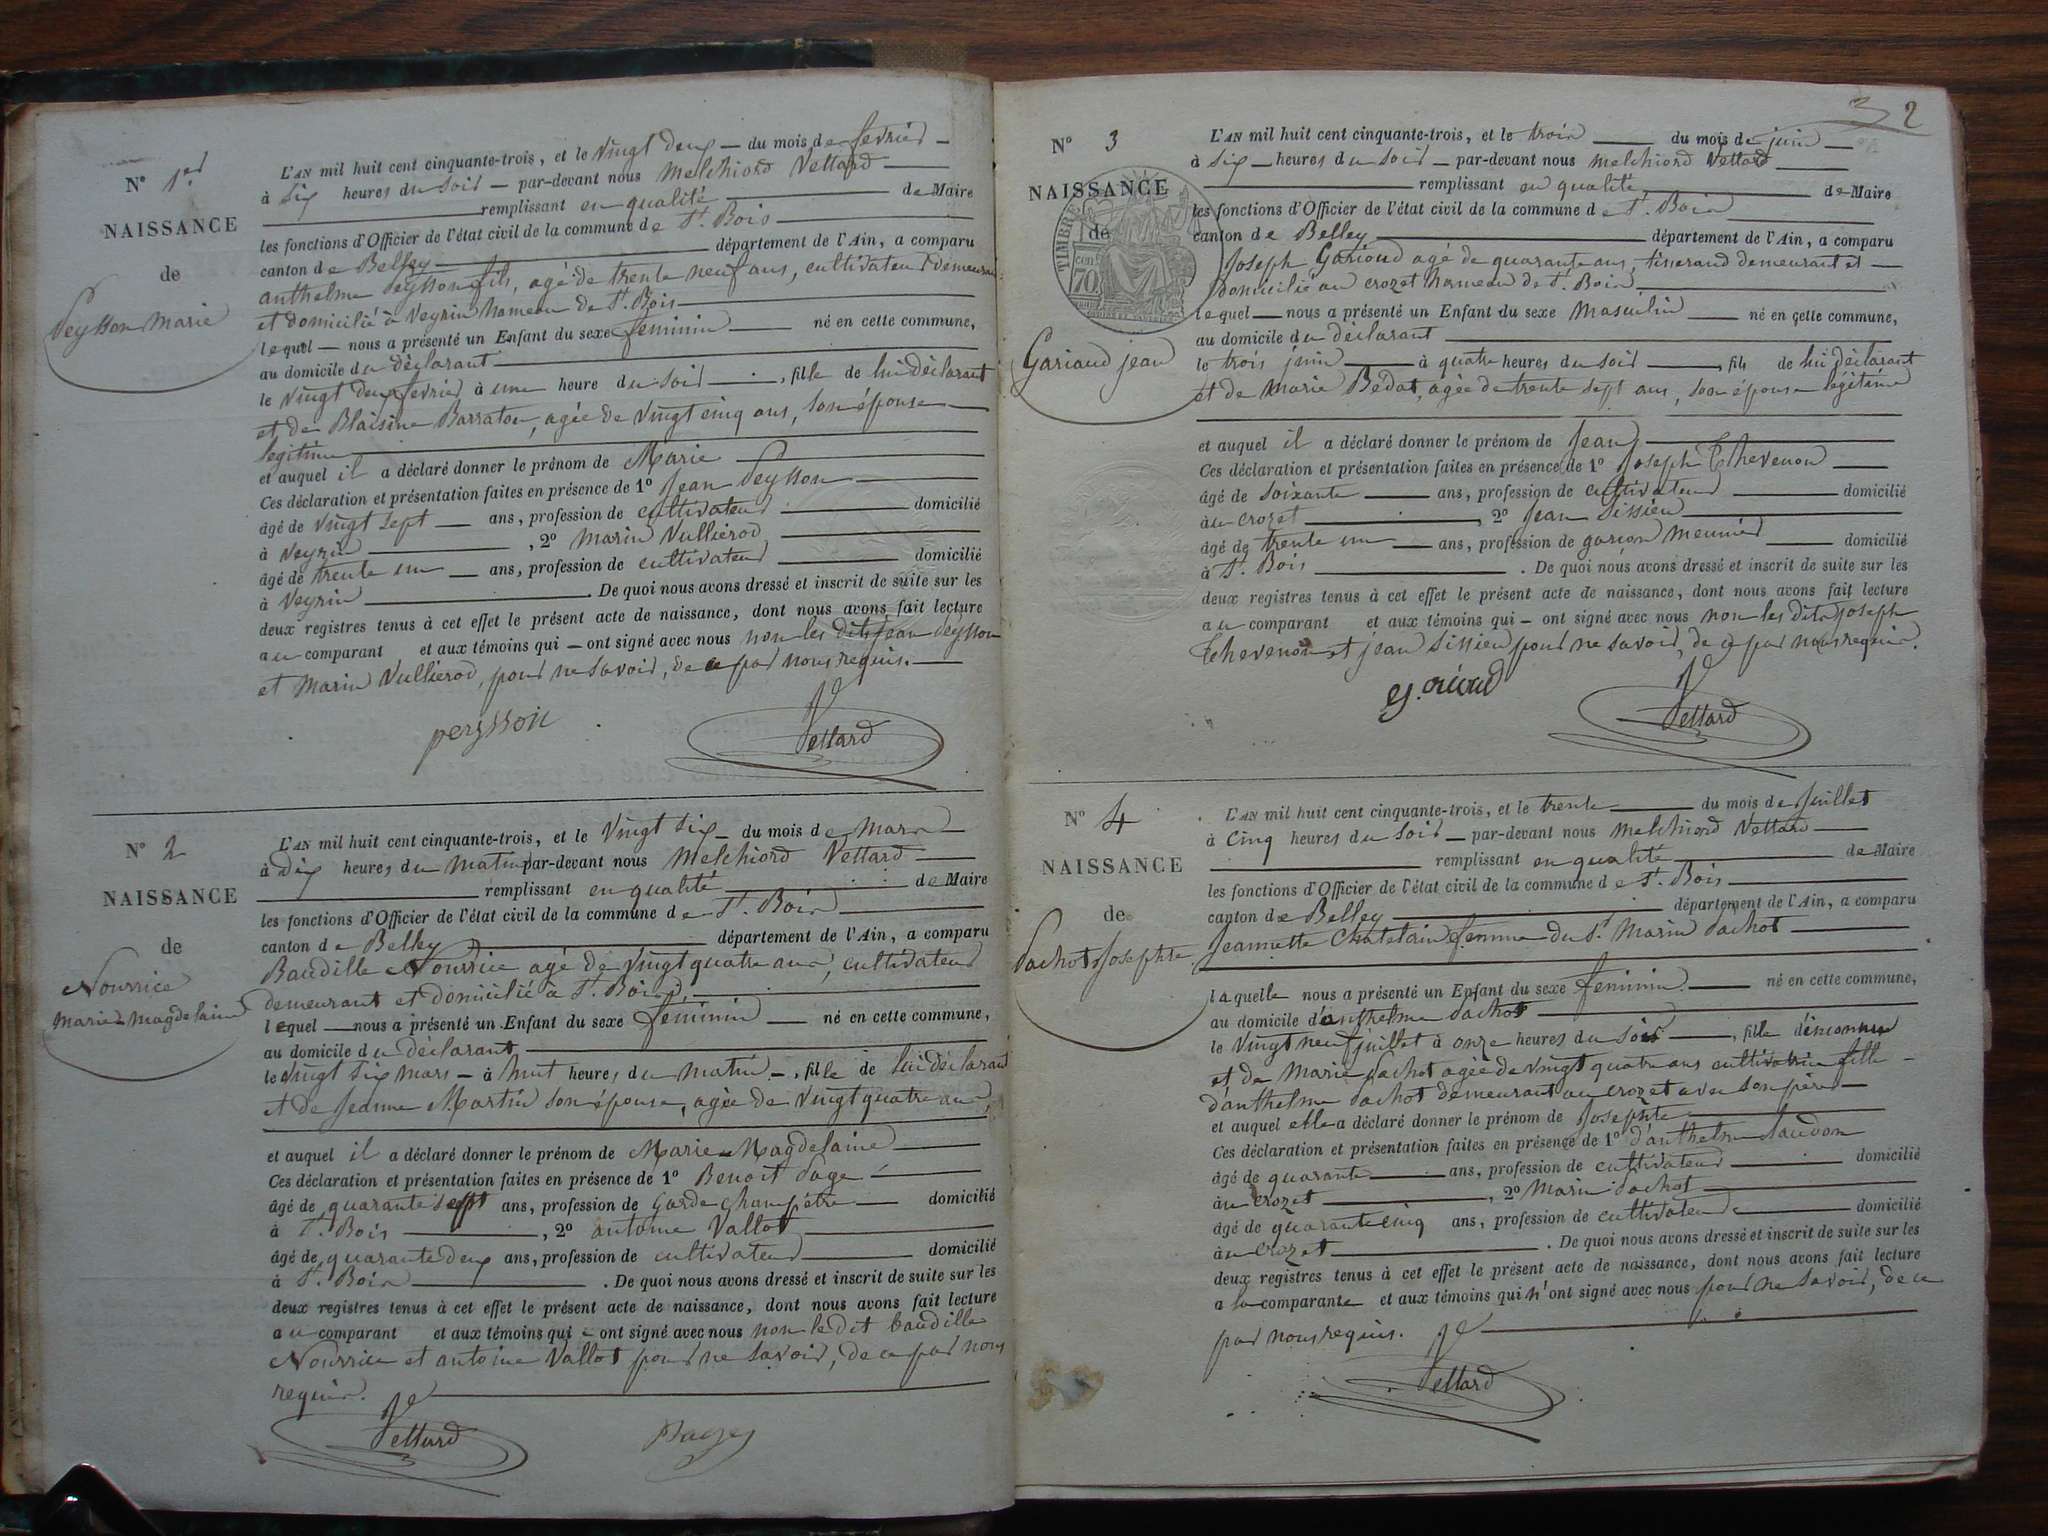 N° 1er
NAISSANCE
de
Peysson Marie
L'AN mil huit cent cinquante-trois, et le vingt deux du mois de fevrier
à six heures du soir par-devant nous Melchiord Vettard
remplissant en qualité de Maire
les fonctions d'Officier de l'état civil de la commune de St. Bois
canton de Belley département de l'Ain, a comparu
anthelme Peysson fils, agé de trente neuf ans, cultivateur demeurant
et domicilié à Veyrin hameau de St. Bois
lequel nous a présenté un Enfant du sexe feminin né en cette commune,
au domicile du déclarant
le vingt deux fevrier à une heure du soir, fille de lui déclarant
et de Blaisine Barraton, agée de vingt cinq ans, son épouse
légitime
et auquel il a déclaré donner le prénom de Marie
Ces déclaration et présentation faites en présence de 1° Jean Peysson
âgé de vingt sept ans, profession de cultivateur domicilié
à Veyrin, 2° Marin Vullierod
âgé de trente un ans, profession de cultivateur domicilié
à Veyrin. De quoi nous avons dressé et inscrit de suite sur les
deux registres tenus à cet effet le présent acte de naissance, dont nous avons fait lecture
au comparant et aux témoins qui ont signé avec nous non les dits Jean Peysson
et Marin Vullierod, pour ne savoir, de ce par nous requis.
peysson Vettard
N° 2
NAISSANCE
de
Nourrice
Marie-Magdelaine
L'AN mil huit cent cinquante-trois, et le vingt six du mois de Mars
à Dix heures du matin par-devant nous Melchiord Vettard
remplissant en qualité de Maire
les fonctions d'Officier de l'état civil de la commune de St. Bois
canton de Belley département de l'Ain, a comparu
Baudille Nourrice agé de vingt quatre ans, cultivateur
demeurant et domicilié à St. Bois
lequel nous a présenté un Enfant du sexe feminin né en cette commune,
au domicile du déclarant
le vingt six mars à huit heures du matin, fille de lui déclarant
et de Jeanne Martin son épouse, agée de vingt quatre ans,
et auquel il a déclaré donner le prénom de Marie-Magdelaine
Ces déclaration et présentation faites en présence de 1° Benoit Page
âgé de quarante sept ans, profession de Garde Champêtre domicilié
à St. Bois, 2° antoine Vallot
âgé de quarante deux ans, profession de cultivateur domicilié
à St. Bois. De quoi nous avons dressé et inscrit de suite sur les
deux registres tenus à cet effet le présent acte de naissance, dont nous avons fait lecture
au comparant et aux témoins qui ont signé avec nous non le dit baudille
Nourrice et antoine Vallot pour ne savoir, de ce par nous
requis.
Vettard Pages
3 2
N° 3
NAISSANCE
de
TIMBRE
70
Gariaud jean
L'AN mil huit cent cinquante-trois, et le trois du mois de juin
à six heures du soir par-devant nous melchiord Vettard
remplissant en qualité de Maire
les fonctions d'Officier de l'état civil de la commune de St. Bois
canton de Belley département de l'Ain, a comparu
Joseph Gariaud agé de quarante ans, tisserand demeurant et
domicilié au crozet hameau de St. Bois
lequel nous a présenté un Enfant du sexe Masculin né en cette commune,
au domicile du déclarant
le trois juin à quatre heures du soir, fils de lui déclarant
et de Marie Bedat, agée de trente sept ans, son épouse légitime
et auquel il a déclaré donner le prénom de Jean
Ces déclaration et présentation faites en présence de 1° Joseph Thevenon
âgé de soixante ans, profession de cultivateur domicilié
au crozet, 2° Jean Sissieu
âgé de trente un ans, profession de garçon meunier domicilié
à St. Bois. De quoi nous avons dressé et inscrit de suite sur les
deux registres tenus à cet effet le présent acte de naissance, dont nous avons fait lecture
au comparant et aux témoins qui ont signé avec nous non les dits joseph
Thevenon et jean Sissieu pour ne savoir, de ce par nous requis.
Vettard
N° 4
NAISSANCE
de
Pachot Josephte
L'AN mil huit cent cinquante-trois, et le trente du mois de Juillet
à Cinq heures du soir par-devant nous Melchiord Vettard
remplissant en qualité de Maire
les fonctions d'Officier de l'état civil de la commune de St. Bois
canton de Belley département de l'Ain, a comparu
Jeannette Chatelain femme du Sr. Marin Pachot
laquelle nous a présenté un Enfant du sexe feminin né en cette commune,
au domicile d'anthelme Pachot
le vingt neuf juillet à onze heures du soir, fille d'inconnu
et de Marie Pachot agée de vingt quatre ans cultivatrice fille
d'anthelme Pachot demeurant au crozet avec son père
et auquel elle a déclaré donner le prénom de Josephte
Ces déclaration et présentation faites en présence de 1° d'anthelme
âgé de quarante ans, profession de cultivateur domicilié
au crozet, 2° Marin Pachot
âgé de quarante cinq ans, profession de cultivateur domicilié
au crozet. De quoi nous avons dressé et inscrit de suite sur les
deux registres tenus à cet effet le présent acte de naissance, dont nous avons fait lecture
a la comparante et aux témoins qui n'ont signé avec nous pour ne savoir, de ce
par nous requis.
Vettard